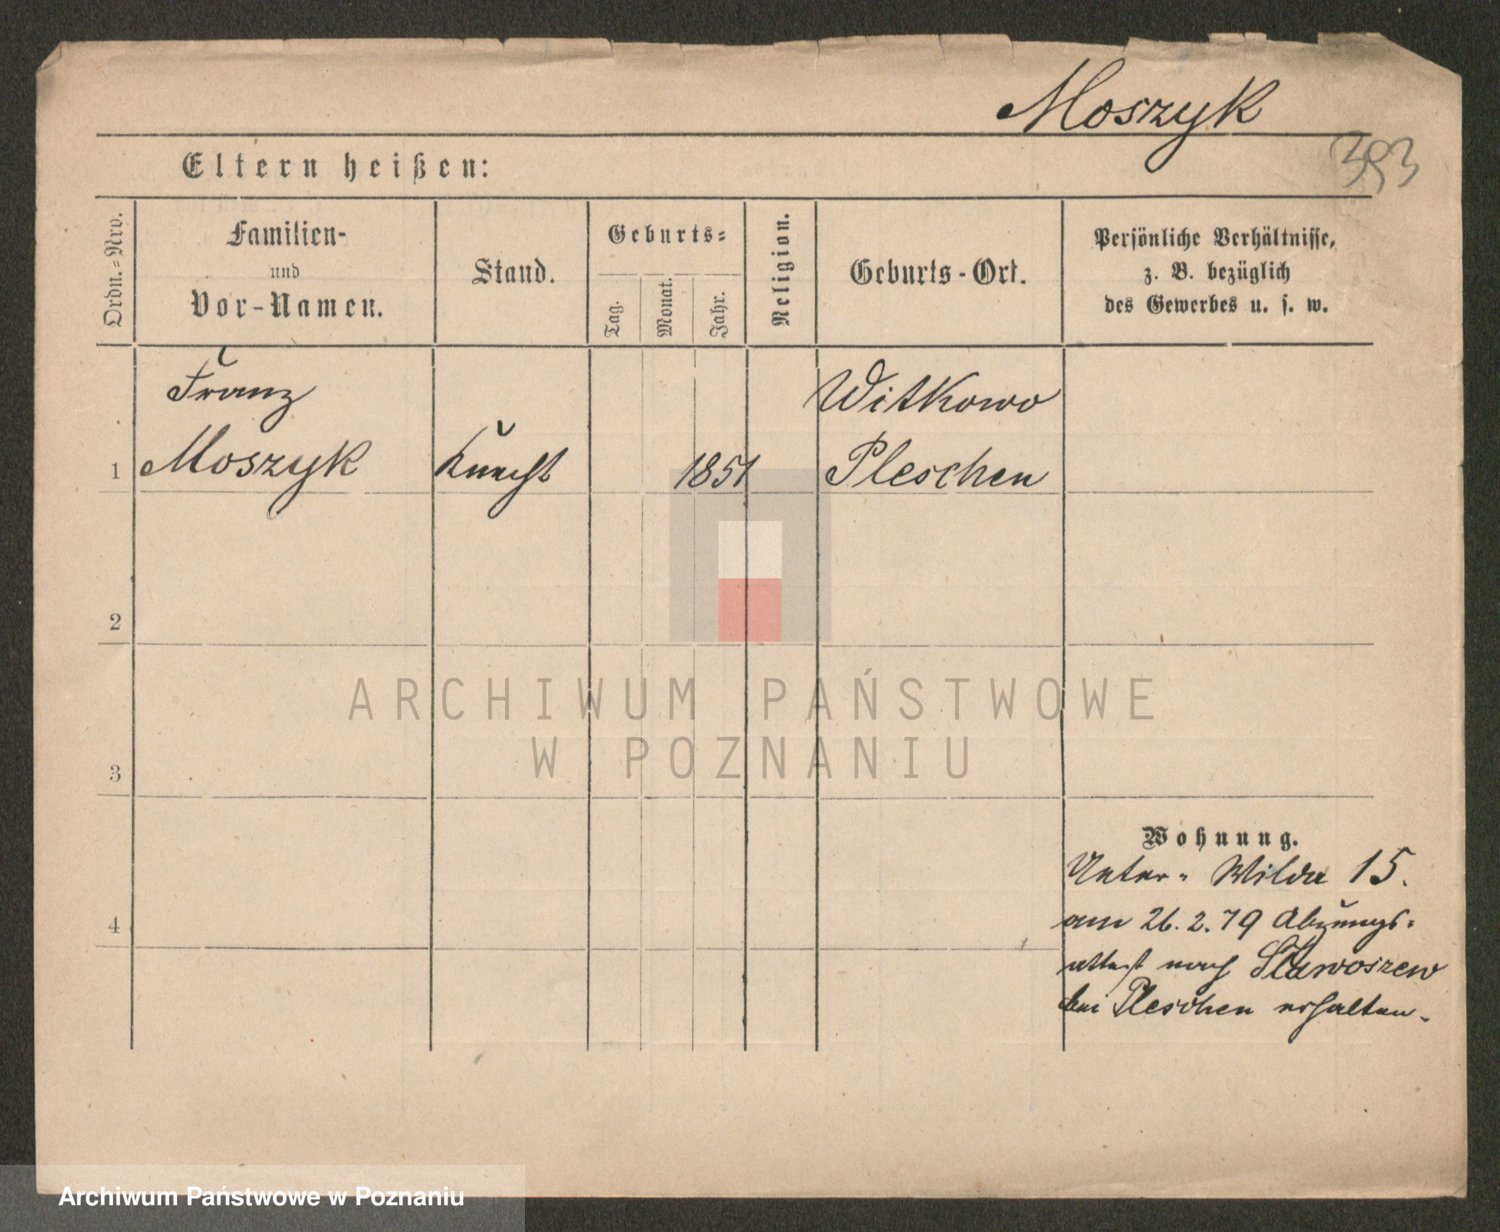 Moszyk
383
Eltern heißen:
Ordn.=Nro.
Familien-
und
Vor-Namen.
Stand.
Geburts=
Tag.
Monat.
Jahr.
Religion.
Geburts-Ort.
Persönliche Verhältnisse,
z. B. bezüglich
des Gewerbes u. s. w.
Franz
Moszyk
1
Knecht
1851
Witkowo
Pleschen
2
3
4
Wohnung.
Unter- Wilda 15.
am 26.2.79 Abzungs-
attest nach Stawoszew
bei Pleschen erhalten.
ARCHIWUM PAŃSTWOWE
W POZNANIU
Archiwum Państwowe w Poznaniu